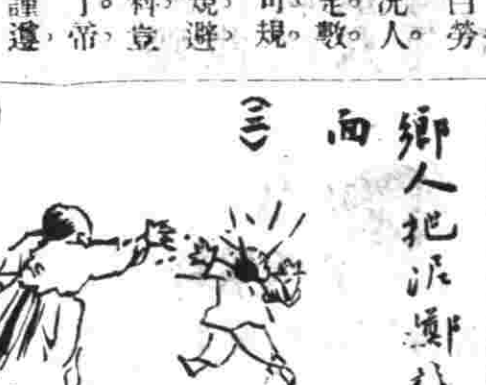 勞
人。
數。
規。
避，
豈
帝，
遵，
鄉人把泥擲
面
（三）